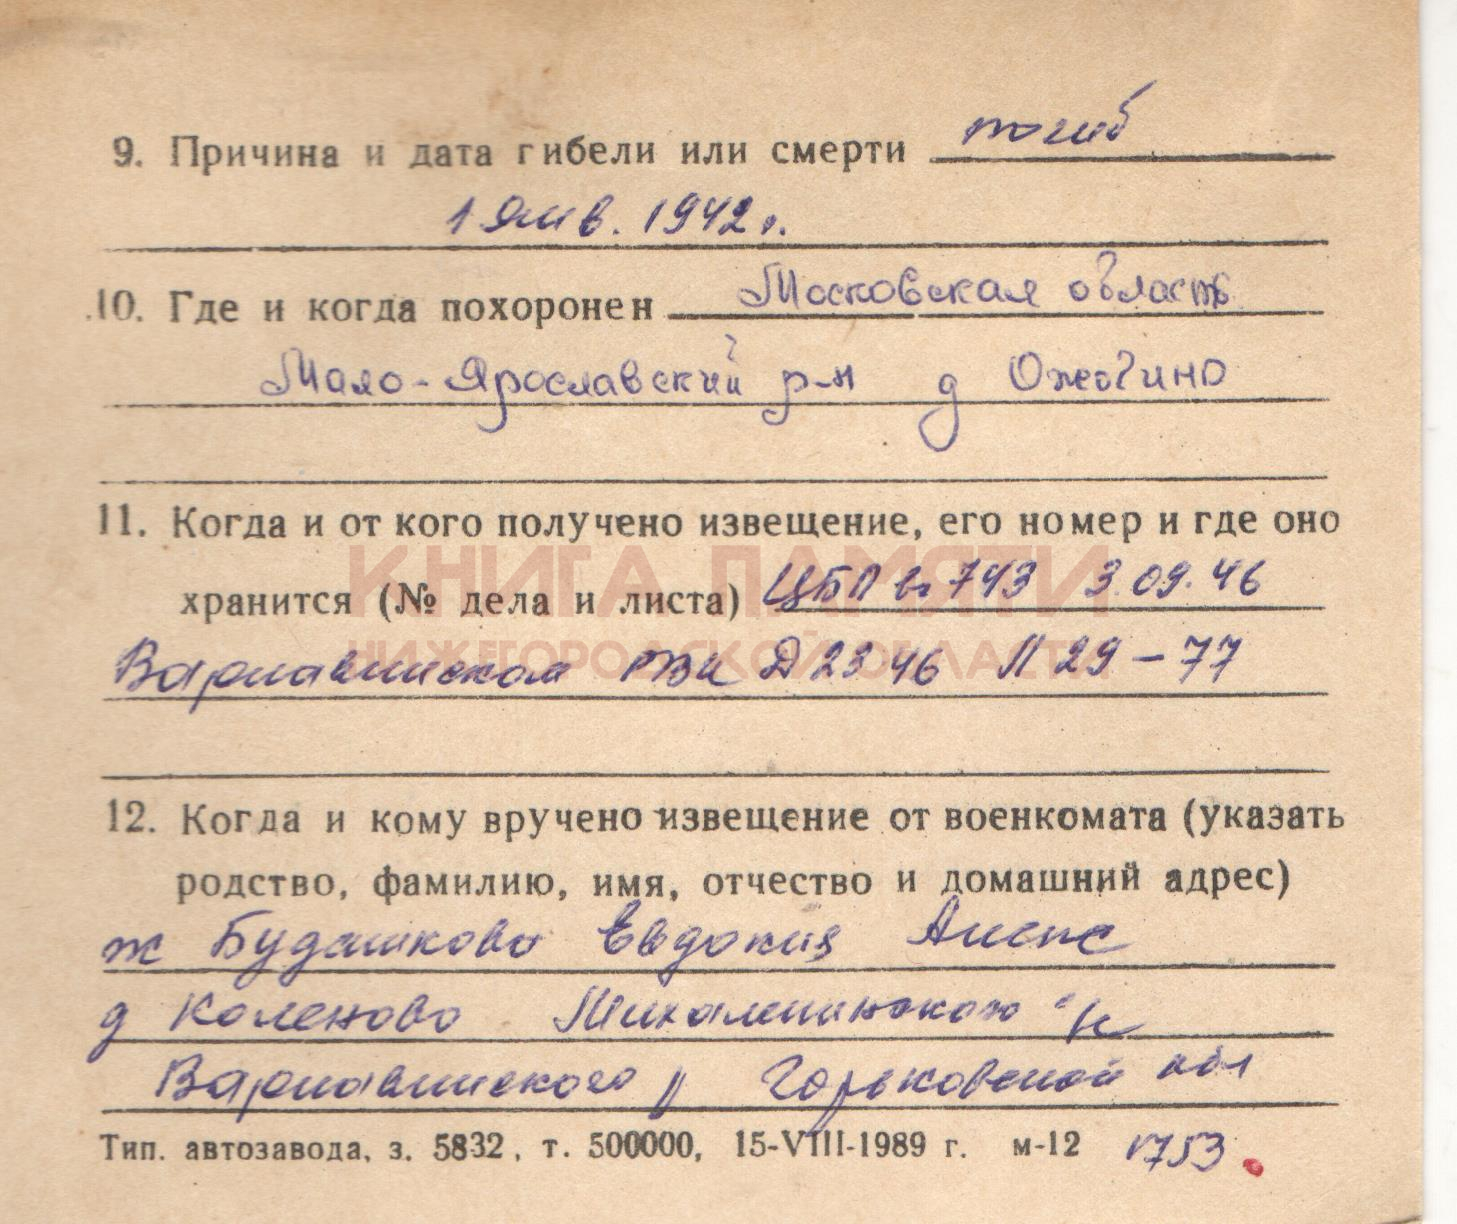 9. Причина и дата гибели или смерти погиб
1 янв. 1942 г.
10. Где и когда похоронен Московская область
Мало-Ярославский р-н д Ожогино
11. Когда и от кого получено извещение, его номер и где оно
КНИГА ПАМЯТИ
хранится (№ дела и листа) ЦБП вх 743 3.09.46
НИЖЕГОРОДСКОЙ ОБЛАСТИ
Варнавинском РВК Д 23 46 Л 29-77
12. Когда и кому вручено извещение от военкомата (указать
родство, фамилию, имя, отчество и домашний адрес)
ж Будашкова Евдокия
д Каленово Михаленинского с/с
Варнавинского р Горьковской обл
Тип. автозавода, з. 5832, т. 500000, 15-VIII-1989 г. м-12 1753